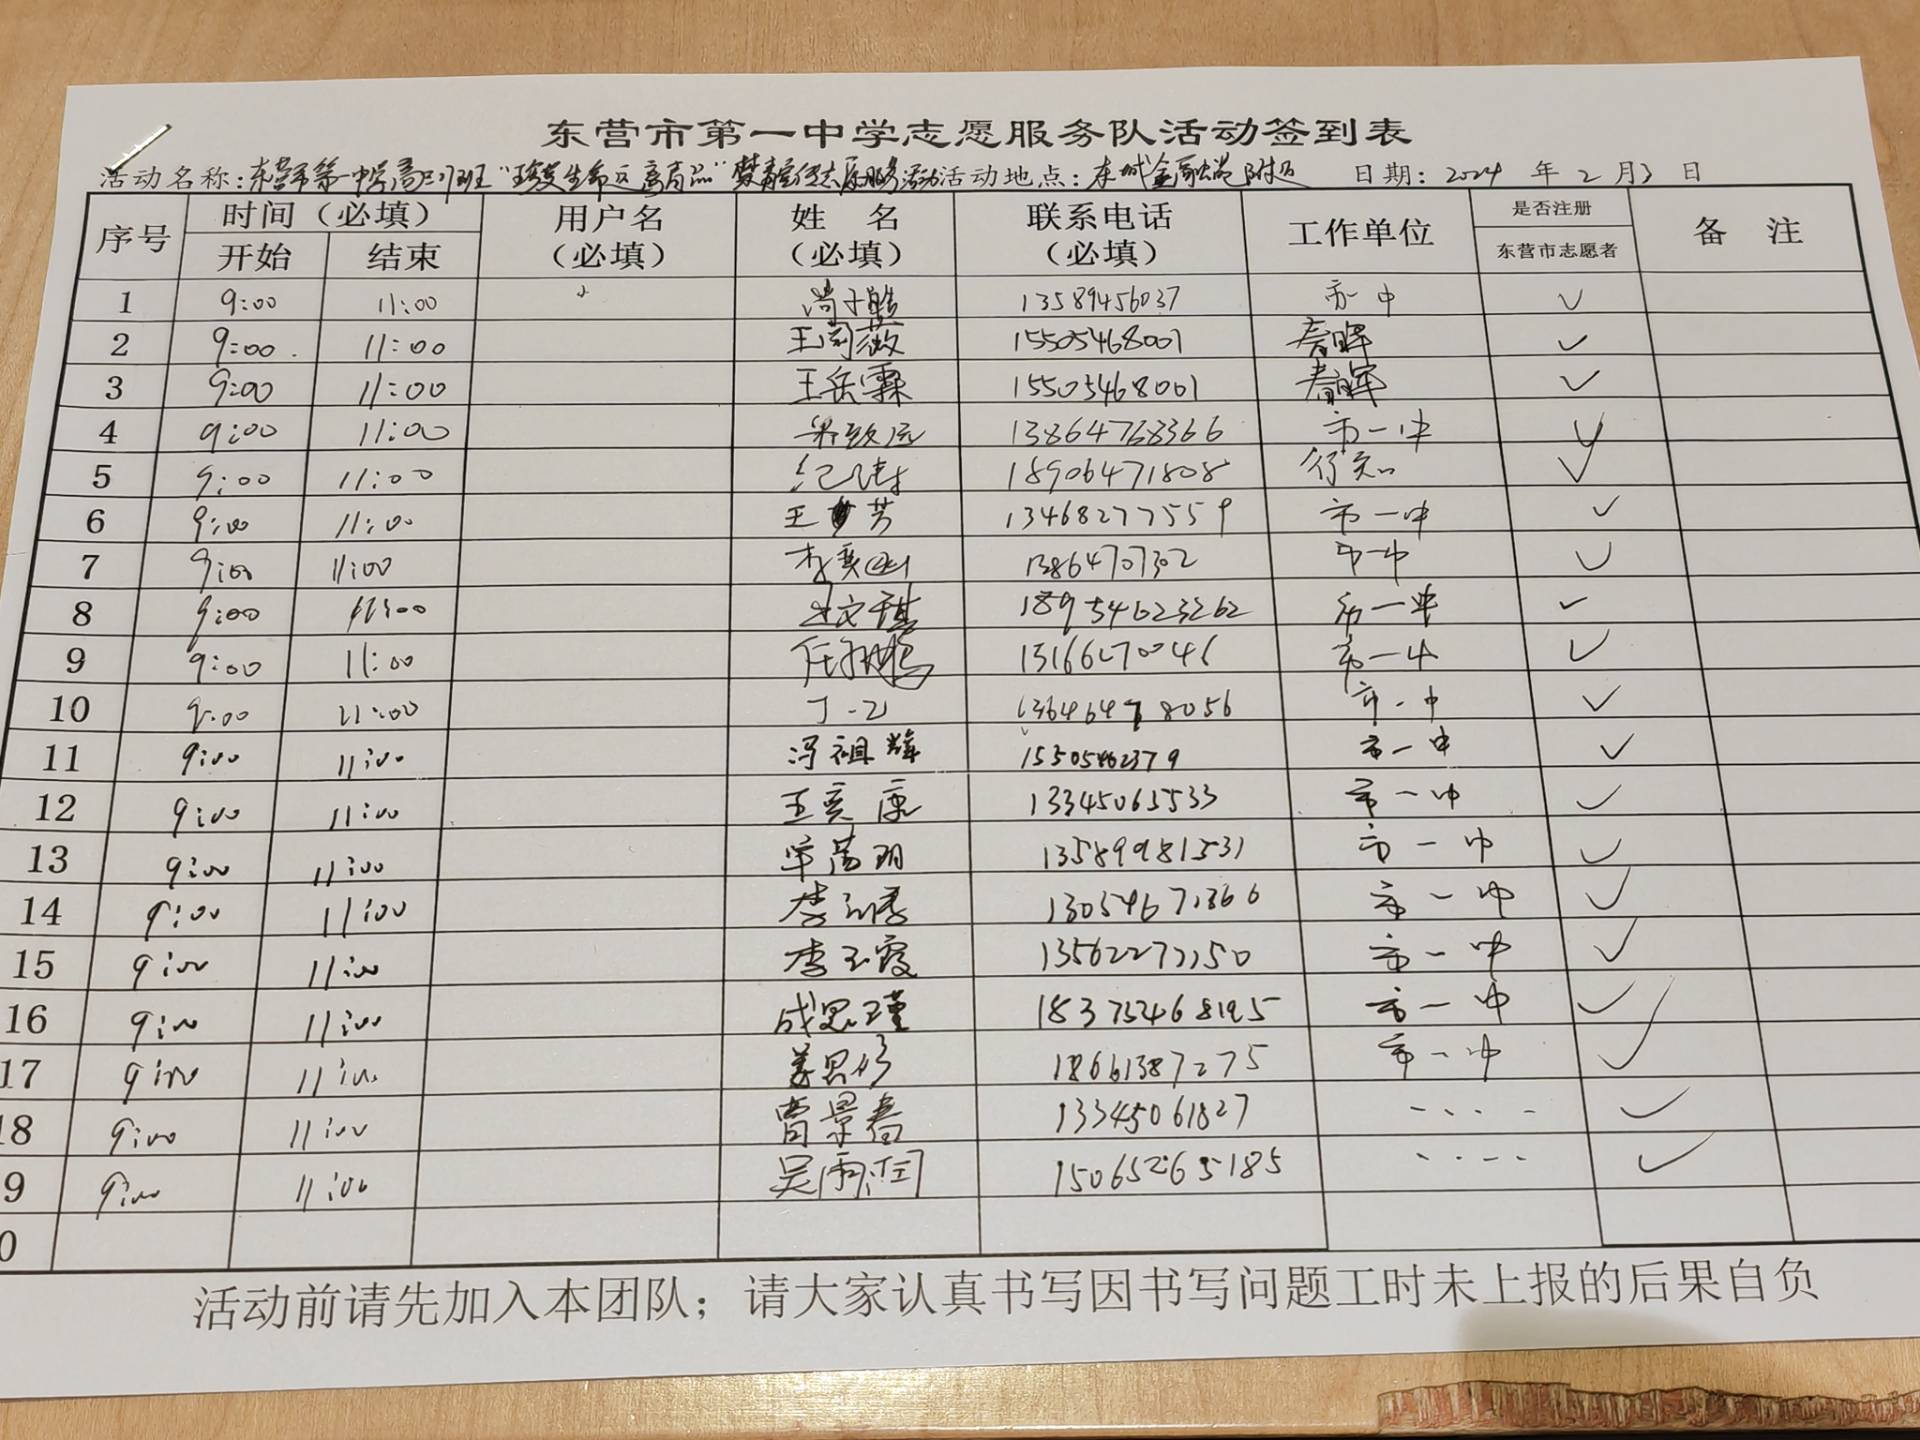 东营市第一中学志愿服务队活动签到表
活动名称：东营市第一中学高 班“珍爱生命远离毒品”禁毒宣传志愿服务活动 活动地点：东城金融港附近 日期：2024 年 2 月 3 日
序号 时间（必填） 用户名（必填） 姓 名（必填） 联系电话（必填） 工作单位 是否注册 东营市志愿者 备 注
开始 结束
1 9:00 11:00 尚子皓 13589456037 市一中 ✓
2 9:00 11:00 王闻薇 15505468001 春晖 ✓
3 9:00 11:00 王岳霖 15505468001 春晖 ✓
4 9:00 11:00 13864768366 市一中 ✓
5 9:00 11:00 纪 18906471808 行知 ✓
6 9:00 11:00 王 芳 13468277559 市一中 ✓
7 9:00 11:00 李奕 13864707302 市一中 ✓
8 9:00 11:00 文琪 18954623262 市一中 ✓
9 9:00 11:00 任 市一中 ✓
10 9:00 11:00 丁一 13646478056 市一中 ✓
11 9:00 11:00 冯祖辉 15505462379 市一中 ✓
12 9:00 11:00 王奕康 13345065533 市一中 ✓
13 9:00 11:00 玥 13589981531 市一中 ✓
14 9:00 11:00 李 13054671366 市一中 ✓
15 9:00 11:00 李玉霞 13562272150 市一中 ✓
16 9:00 11:00 成思瑾 市一中 ✓
17 9:00 11:00 姜思修 18661387275 市一中 ✓
18 9:00 11:00 曹景春 13345061827 ✓
9 9:00 11:00 吴雨闰 15065265185 ✓
0
活动前请先加入本团队；请大家认真书写因书写问题工时未上报的后果自负